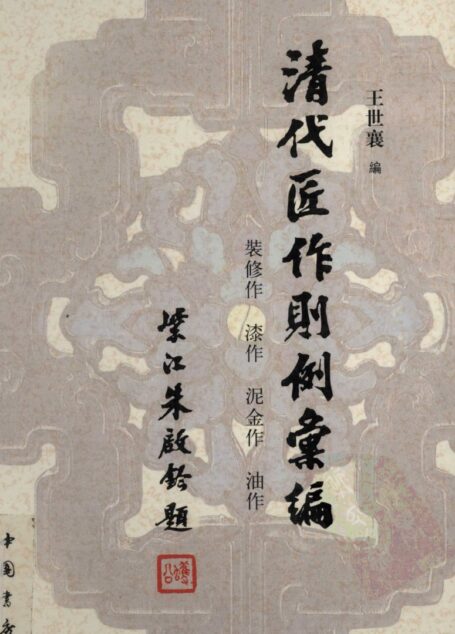 王世襄 編
清代匠作則例彙編
裝修作 漆作 泥金作 油作
紫江朱啟鈐題
蠖公
中國書店